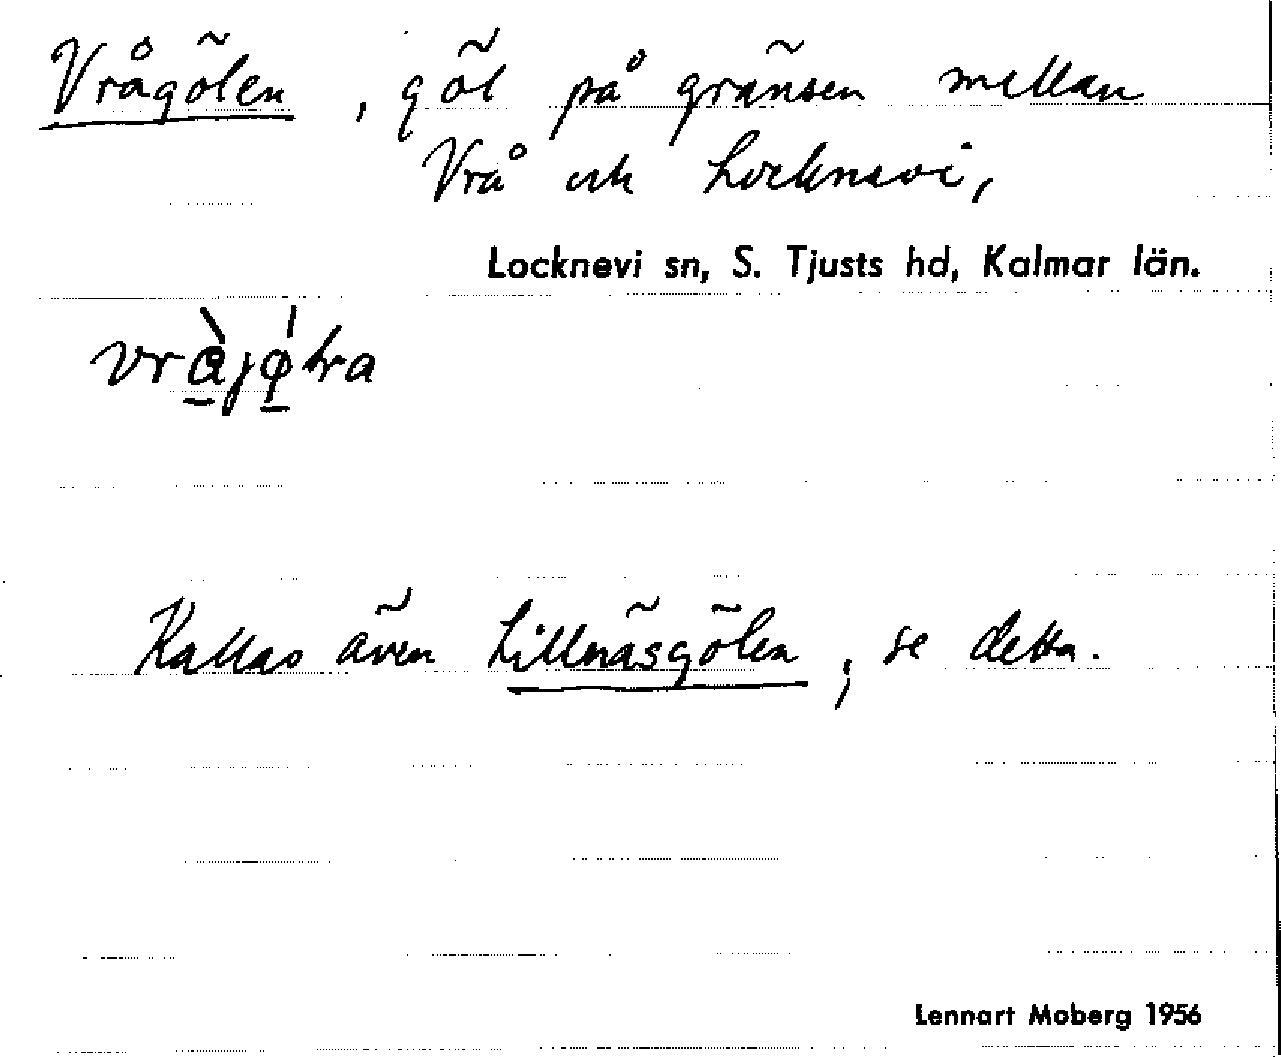 Vrågölen, göl på gränsen mellan
Vrå och Locknevi,
Locknevi sn, S. Tjusts hd, Kalmar län.
Kallas även Lillnäsgölen; se detta.
Lennart Moberg 1956